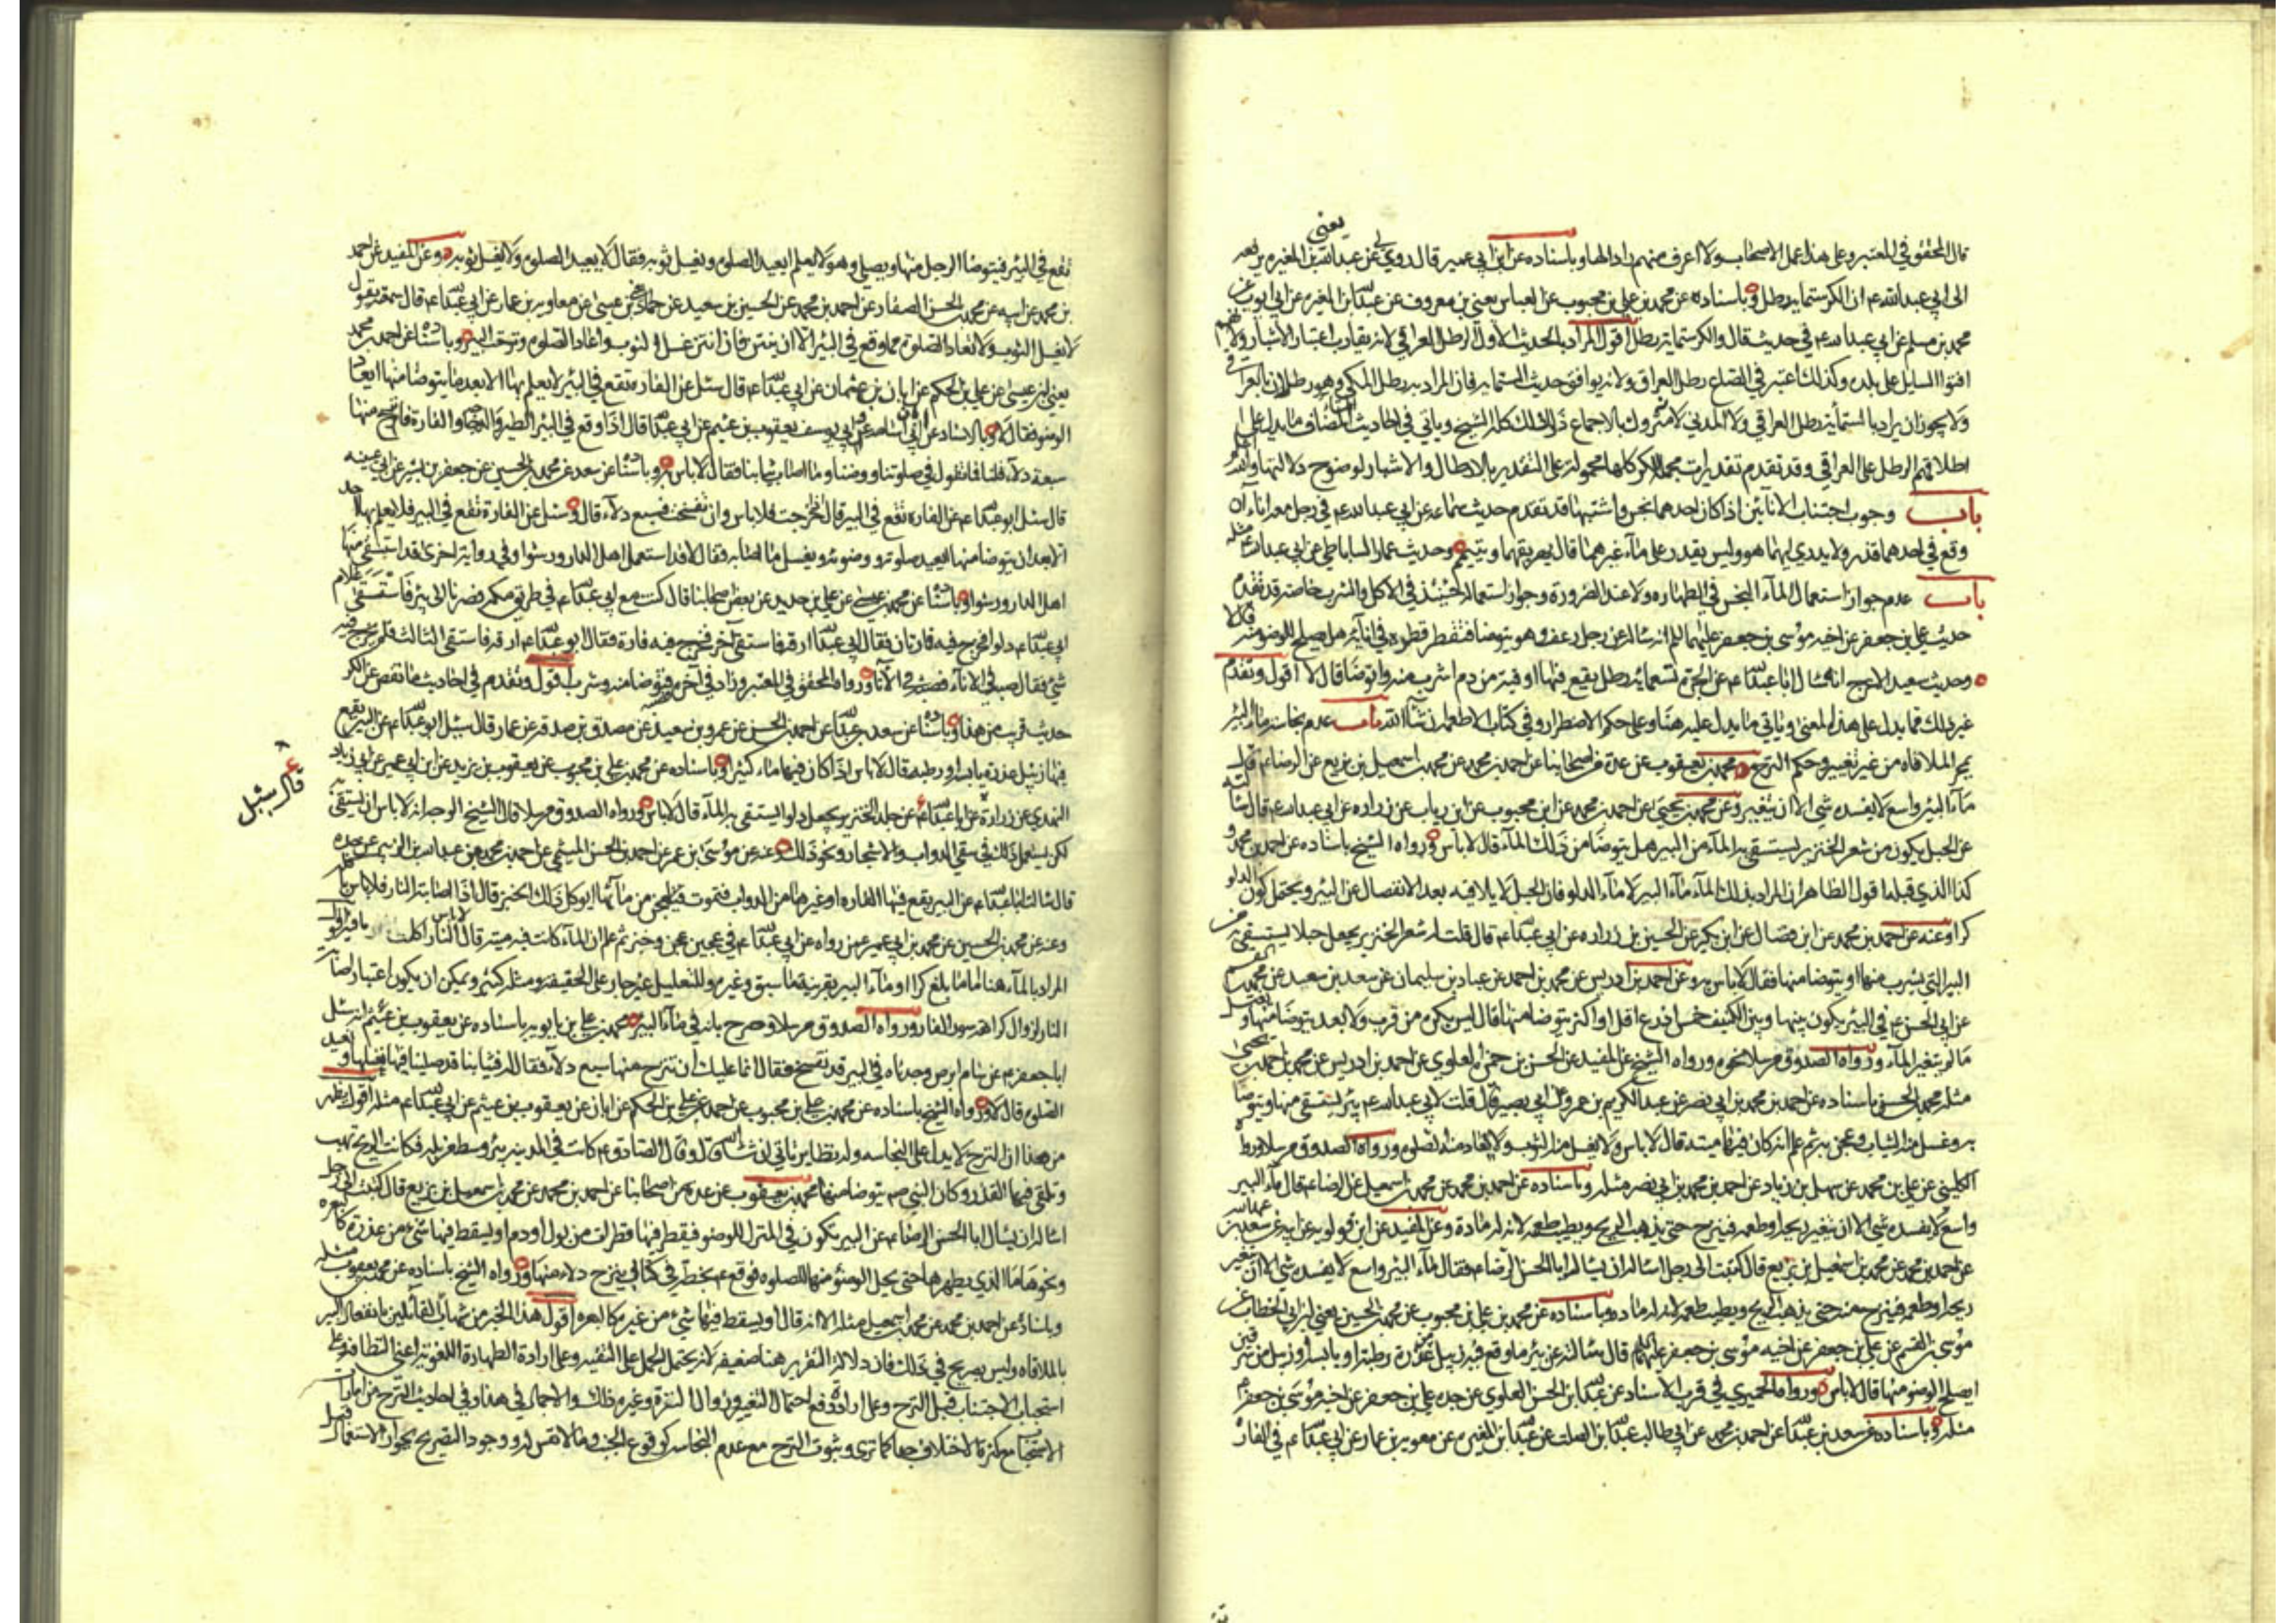 يعني
قال المحقق في المعتبر وعلى هذا عمل الاصحاب ولا اعرف منهم رادا لها وباسناده عن ابن ابي عمير قال روي لي عن عبد الله بن المغيرة يرفعه
الى ابي عبد الله ع ان الكر ستماية رطل وباسناده عن محمد بن علي بن محبوب عن العباس يعني بن معروف عن عبد الله بن المغيرة عن ابي ايوب عن
محمد بن مسلم عن ابي عبد الله ع في حديث قال والكر ستماية رطل اقول المراد بالحديث الاول الرطل العراقي لانه يقارب اعتبار الاشبار ولانهم
افتوا السايل على بلده وكذلك اعتبر في الصاع رطل العراق ولانه يوافق حديث الستماية فان المراد به رطل المكي وهو رطلان بالعراقي
ولا يجوز ان يراد بالستمأية رطل العراقي ولا المدني لانه متروك بالاجماع ذكر ذلك كله الشيخ وياتي في احاديث المضاف ما يدل على
اطلاقهم الرطل على العراقي وقد تقدم تقديرات مجملة للكر كلها محمولة على التقدير بالارطال والاشبار لوضوح دلالتها والله اعلم
باب وجوب اجتناب الانائين اذا كان احدهما نجس واشتبها قد تقدم حديث سماعه عن ابي عبد الله ع في رجل معه اناءان
وقع في احدهما قذر ولا يدري ايهما هو وليس يقدر على مآء غيرهما قال يهريقهما ويتيمم وحديث عمار الساباطي عن ابي عبد الله ع مثله
باب عدم جواز استعمال المآء النجس في الطهاره ولا عند الضرورة وجواز استعماله حينئذ في الاكل والشرب خاصة قد تقدم
حديث علي بن جعفر عن اخيه موسى بن جعفر عليهما السلم انه ساله عن رجل رعف وهو يتوضا فتقطر قطرة في انائه هل يصلح للوضوء منه قال لا
وحديث سعيد الاعرج انه سال ابا عبد الله ع عن الجرة تسعماية رطل يقع فيها اوقية من دم اشرب منه واتوضا قال لا اقول وتقدم
غير ذلك مما يدل على هذا المعنى وياتي ما يدل عليه هنا وعلى حكم الاضطرار وفي كتاب الاطعمة ان شآء الله باب عدم نجاسة ماء البئر
بمجرد الملاقاه من غير تغيير وحكم النزح محمد بن يعقوب عن عدة من اصحابنا عن احمد بن محمد عن محمد بن اسمعيل بن بزيع عن الرضا ع قال
مآء البئر واسع لا يفسده شي الا ان يتغير وعن محمد بن يحيى عن احمد بن محمد عن ابن محبوب عن ابن رياب عن زراره عن ابي عبد الله ع قال سالته
عن الحبل يكون من شعر الخنزير يستقى به المآء من البير هل يتوضا من ذلك المآء قال لا باس ورواه الشيخ باسناده عن احمد بن محمد و
كذا الذي قبله اقول الظاهر ان المراد بذلك المآء مآء البير لا مآء الدلو فان الحبل لا يلاقيه بعد الانفصال عن البير ويحتمل كون الدلو
كرا وعنه عن احمد بن محمد عن ابن فضال عن ابن بكير عن الحسين بن زراره عن ابي عبد الله ع قال قلت له شعر الخنزير يجعل حبلا يستسقى به من
البير التي يشرب منها او يتوضا منها فقال لا باس به وعن احمد بن ادريس عن محمد بن احمد عن عباد بن سليمان عن سعد بن سعيد عن محمد بن القسم
عن ابي الحسن ع في البئر يكون بينها وبين الكنيف خمس اذرع اقل او اكثر يتوضا منها قال ليس يكره من قرب ولا بعد يتوضا منها ويغتسل
ما لم يتغير المآء ورواه الصدوق مرسلا نحوه ورواه الشيخ عن المفيد عن الحسن بن حمزه العلوي عن احمد بن ادريس عن محمد بن احمد بن يحيى
مثله محمد بن الحسن باسناده عن احمد بن محمد بن ابي نصر عن عبد الكريم بن عمرو عن ابي بصير قال قلت لابي عبد الله ع بئر يستقى منها ويتوضا
به وغسل منه الثياب وعجن به ثم علم انه كان فيها ميت قال لا باس ولا يغسل منه الثوب ولا تعاد منه الصلوة ورواه الصدوق مرسلا ورواه
الكليني عن علي بن محمد عن سهل بن زياد عن احمد بن محمد بن ابي نصر مثله وباسناده عن احمد بن محمد عن محمد بن اسمعيل عن الرضا ع قال ماء البير
واسع لا يفسده شي الا ان يتغير ريحه او طعمه فينزح حتى يذهب الريح ويطيب طعمه لانه له مادة وعن المفيد عن ابن قولويه عن ابيه عن سعد بن عبد الله
عن احمد بن محمد عن محمد بن اسمعيل بن بزيع قال كتبت الى رجل اساله ان يسال ابا الحسن الرضا ع فقال مآء البئر واسع لا يفسده شي الا ان يتغير
ريحه او طعمه فينزح منه حتى يذهب الريح ويطيب طعمه لانه له ماده وباسناده عن محمد بن علي بن محبوب عن محمد بن الحسين يعني ابن ابي الخطاب عن
موسى بن القسم عن علي بن جعفر عن اخيه موسى بن جعفر عليهما السلم قال سالته عن بئر ماء وقع فيه زبيل من عذرة رطبة او يابسة او زبيل من سرقين
ايصلح الوضوء منها قال لا باس ورواه الحميري في قرب الاسناد عن عبد الله بن الحسن العلوي عن جده علي بن جعفر عن اخيه موسى بن جعفر ع
مثله وباسناده عن سعد بن عبد الله عن احمد بن محمد عن ابي طالب عبد الله بن الصلت عن عبد الله بن المغيره عن معوية بن عمار عن ابي عبد الله ع في الفارة
تقع في البئر فيتوضا الرجل منها ويصلي وهو لا يعلم ايعيد الصلوة ويغسل ثوبه فقال لا يعيد الصلوة ولا يغسل ثوبه وعن المفيد عن احمد
بن محمد عن ابيه عن محمد بن الحسن الصفار عن احمد بن محمد عن الحسين بن سعيد عن حماد يعني بن عيسى عن معاوية بن عمار عن ابي عبد الله ع قال سمعته يقول
لا يغسل الثوب ولا تعاد الصلوة مما وقع في البئر الا ان ينتن فان انتن غسل الثوب واعاد الصلوة ونزحت البير وباسناده عن احمد بن محمد
يعني ابن عيسى عن علي بن الحكم عن ابان بن عثمان عن ابي عبد الله ع قال سئل عن الفارة تقع في البئر لا يعلم بها الا بعد ما يتوضا منها ايعاد
الوضوء فقال لا وبالاسناد عن ابان عن ابي اسامه وابي يوسف يعقوب بن عثيم عن ابي عبد الله ع قال اذا وقع في البئر الطير والدجاجة والفارة فانزح منها
سبعة دلآء قلنا فما تقول في صلوتنا ووضوئنا وما اصاب ثيابنا فقال لا باس به وباسناده عن سعد عن محمد بن الحسين عن جعفر بن بشير عن ابي عيينه
قال سئل ابو عبد الله ع عن الفارة تقع في البير قال اذا خرجت فلا باس وان تفسخت فسبع دلآء قال وسئل عن الفارة تقع في البير فلا يعلم بها احد
الا بعد ان يتوضا منها ايعيد صلوته ووضوئه ويغسل ما اصابه فقال لا قد استعمل اهل الدار ورشوا وفي رواية اخرى قد استقى منها
اهل الدار ورشوا وباسناده عن محمد بن عيسى عن علي بن حديد عن بعض اصحابنا قال كنت مع ابي عبد الله ع في طريق مكه فصرنا الى بئر فاستقى غلام
ابي عبد الله ع دلوا فخرج فيه فارتان فقال ابي عبد الله ارقه فاستقى آخر فخرج فيه فارة فقال ابو عبد الله ع ارقه فاستقى الثالث فلم يخرج فيه
شي فقال صبه في الانآء فصبه في الانآء ورواه المحقق في المعتبر وزاد في آخره فتوضا منه وشرب اقول وتقدم في احاديث ما نقص عن الكر
حديث قريب من هذا وباسناده عن سعد بن عبد الله عن احمد بن الحسن عن عمرو بن سعيد عن مصدق بن صدقة عن عمار قال سئل ابو عبد الله ع عن البير يقع
فيها زبيل عذرة يابسة او رطبة فقال لا باس اذا كان فيها ماء كثير وباسناده عن محمد بن علي بن محبوب عن يعقوب بن يزيد عن ابن ابي عمير عن ابي زياد
النهدي عن زرارة عن ابي عبد الله ع عن جلد الخنزير يجعل دلوا يستقى به المآء قال لا باس ورواه الصدوق مرسلا قال الشيخ الوجه انه لا باس ان يستقى به
قال سئل
لكن يستعمل ذلك في سقي الدواب والاشجار ونحو ذلك وعنه عن موسى بن عمر عن احمد بن الحسن الميثمي عن احمد بن محمد بن عبد الله بن الزبير عن جده
قال سالت ابا عبد الله ع عن البير يقع فيها الفاره او غيرها من الدواب فتموت فيعجن من مآئها ايوكل ذلك الخبز قال اذا اصابته النار فلا باس باكله
وعنه عن محمد بن الحسين عن محمد بن ابي عمير عمن رواه عن ابي عبد الله ع في عجين عجن وخبز ثم علم ان المآء كانت فيه ميتة قال لا باس النار اكلت ما فيه اقول
المراد بالمآء هنا اما ما بلغ كرا او مآء البير بقرينة ما سبق وغيره والتعليل غير جار على الحقيقة ومثله كثير ويمكن ان يكون اعتبار اصابة
النار لزوال كراهة سور الفار ورواه الصدوق مرسلا وصرح بانه في مآء البير محمد بن علي بن بابويه باسناده عن يعقوب بن عثيم انه سئل
ابا جعفر ع عن سام ابرص وجدناه في البير قد تفسخ فقال انما عليك ان تنزح منها سبع دلآء فقال له فثيابنا قد صلينا فيها نغسلها ونعيد
الصلوة قال لا ورواه الشيخ باسناده عن محمد بن علي بن محبوب عن احمد عن علي بن الحكم عن ابان عن يعقوب بن عثيم عن ابي عبد الله ع مثله اقول يظهر
من هذا ان النزح لا يدل على النجاسه وله نظاير تاتي ان شاء الله قال وقال الصادق ع كانت في المدينه بئر وسط مزبلة فكانت الريح تهب
وتلقي فيها القذر وكان النبي ص يتوضا منها محمد بن يعقوب عن عدة من اصحابنا عن احمد بن محمد عن محمد بن اسمعيل بن بزيع قال كتبت الى رجل
اساله ان يسال ابا الحسن الرضا ع عن البير تكون في المنزل للوضوء فيقطر فيها قطرات من بول او دم او يسقط فيها شيء من عذرة كالبعرة
ونحوها ما الذي يطهرها حتى يحل الوضوء منها للصلوه فوقع ع بخطه في كتابي ينزح دلاء منها ورواه الشيخ باسناده عن محمد بن يعقوب مثله
وباسناده عن احمد بن محمد عن محمد بن اسمعيل مثله الا انه قال او يسقط فيها شيء من غيره كالبعره اقول هذا الخبر من شبهات القائلين بانفعال البير
بالملاقاه وليس بصريح في ذلك فان دلالة التقرير هنا ضعيفه لانه يحتمل الحمل على التقيه وعلى ارادة الطهارة اللغوية اعني النظافة وعلى
استحباب الاجتناب قبل النزح وعلى ارادة دفع احتمال التغير وزوال النفرة وغير ذلك والاجمال في هذا وفي احاديث النزح من امارات
الاستحباب مع كثرة الاختلاف جدا كما ترى وثبوت النزح مع عدم النجاسه كوقوع الجنب وما لا نفس له ووجود التصريح بجواز الاستعمال قبل